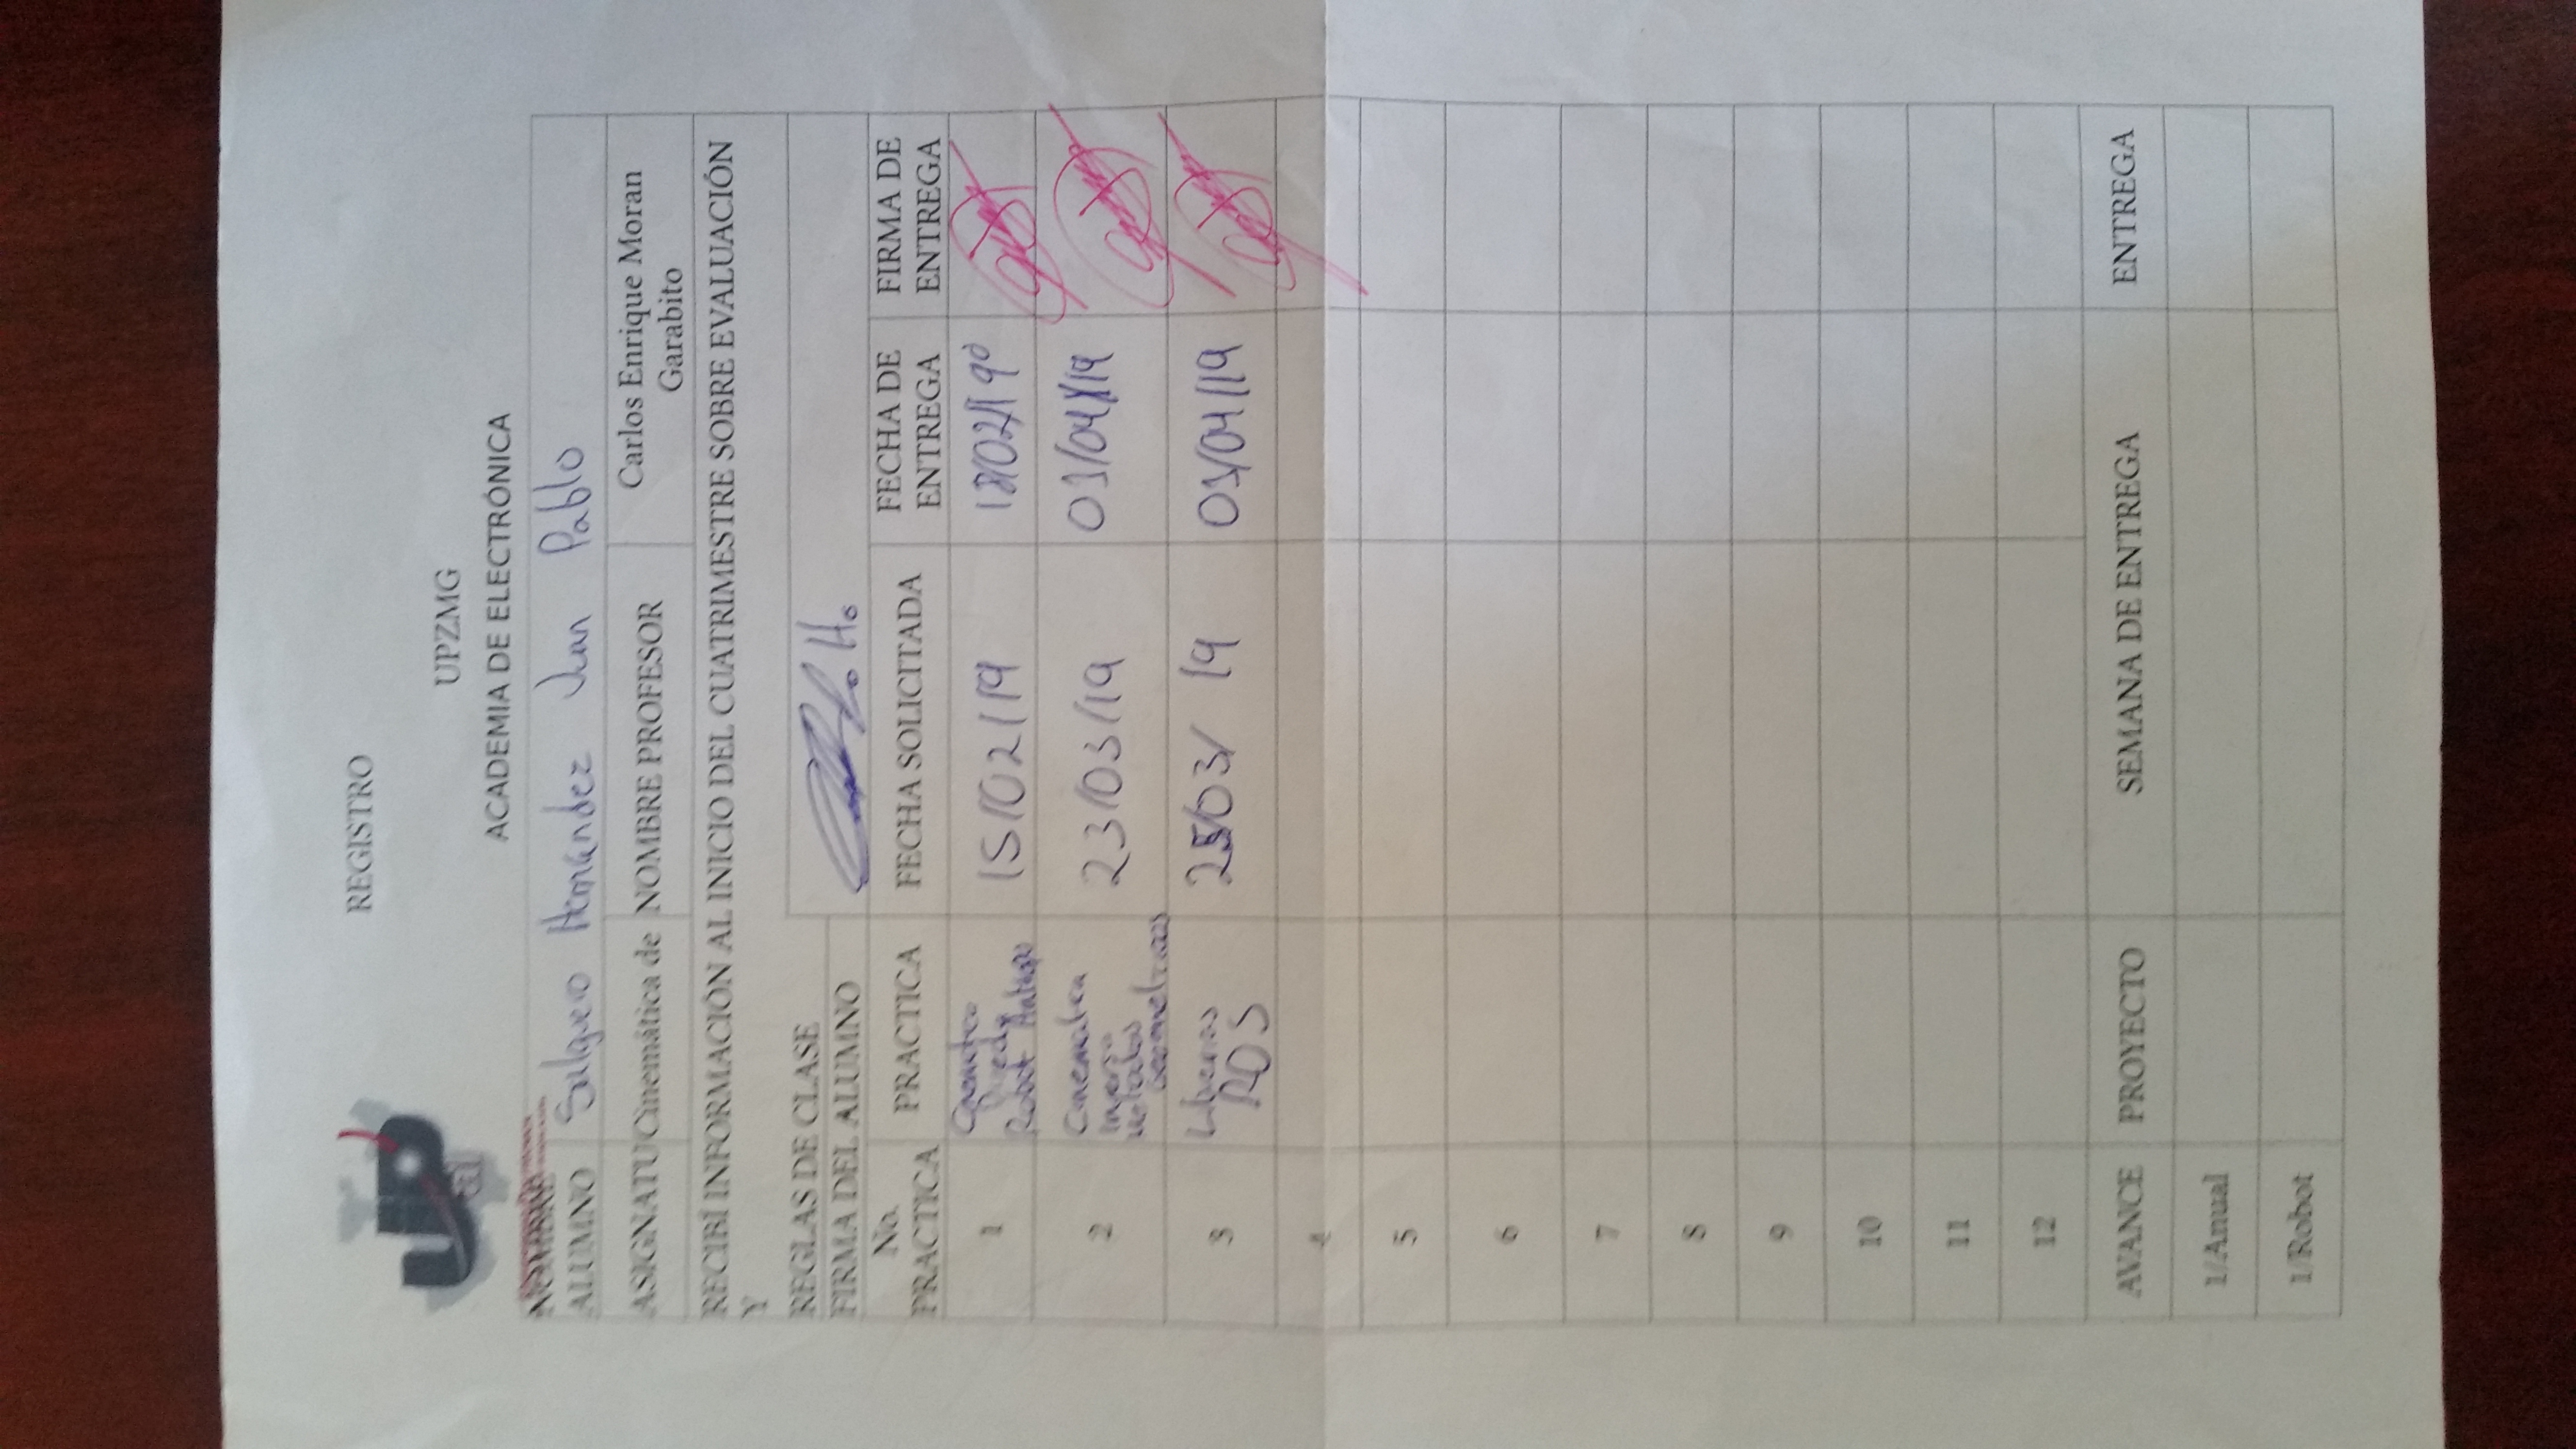 REGISTRO
UPZMG
ACADEMIA DE ELECTRÓNICA
NOMBRE
ALUMNO Salguero Hernández Juan Pablo
ASIGNATU Cinemática de NOMBRE PROFESOR Carlos Enrique Moran
Garabito
RECIBÍ INFORMACIÓN AL INICIO DEL CUATRIMESTRE SOBRE EVALUACIÓN
Y
REGLAS DE CLASE
FIRMA DEL ALUMNO
No.
PRACTICA PRACTICA FECHA SOLICITADA FECHA DE
ENTREGA FIRMA DE
ENTREGA
1
Robot 15/02/19 18/02/19
2 Cinematica
Inversa
Metodos
Geometricos 23/03/19 03/04/19
3 Librerias
ROS 25/03/ 19 03/04/19
4
5
6
7
8
9
10
11
12
AVANCE PROYECTO SEMANA DE ENTREGA ENTREGA
1/Anual
1/Robot